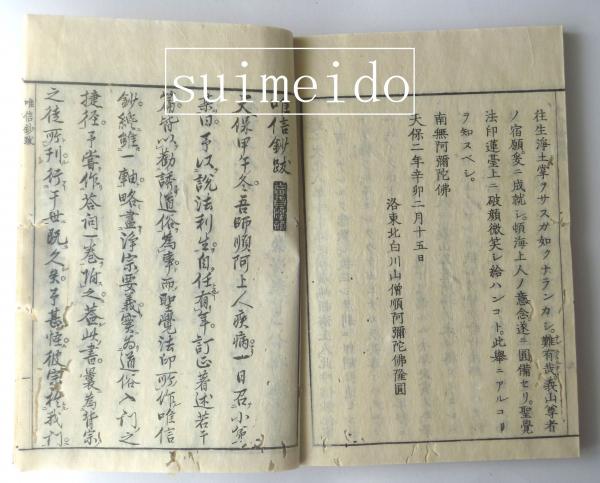 suimeido
往生淨土掌ヲサスガ如クナランカシ。難有哉義山尊者
ノ宿願爰ニ成就シ。頓海上人ノ意念遂ニ圓備セリ。聖覺
法印蓮臺上ニ破顔微笑シ給ハンコト。此擧ニアルコト
ヲ知スベシ。
南無阿彌陀佛
天保二年辛卯二月十五日
洛東北白川山僧順阿彌陀佛隆圓
唯信鈔跋
天保甲午冬吾師順阿上人疾病一日召小
曰予以説法利生自任有年訂正著述若干
篇皆以勸誘道俗為事而聖覺法印所作唯信
鈔纔雖一軸略盡淨宗要義實為道俗入門之
捷径予嘗作答詞一卷 之蓋此書曩為背宗
之徒所刊行于世既久矣予甚 彼 我
唯信鈔跋